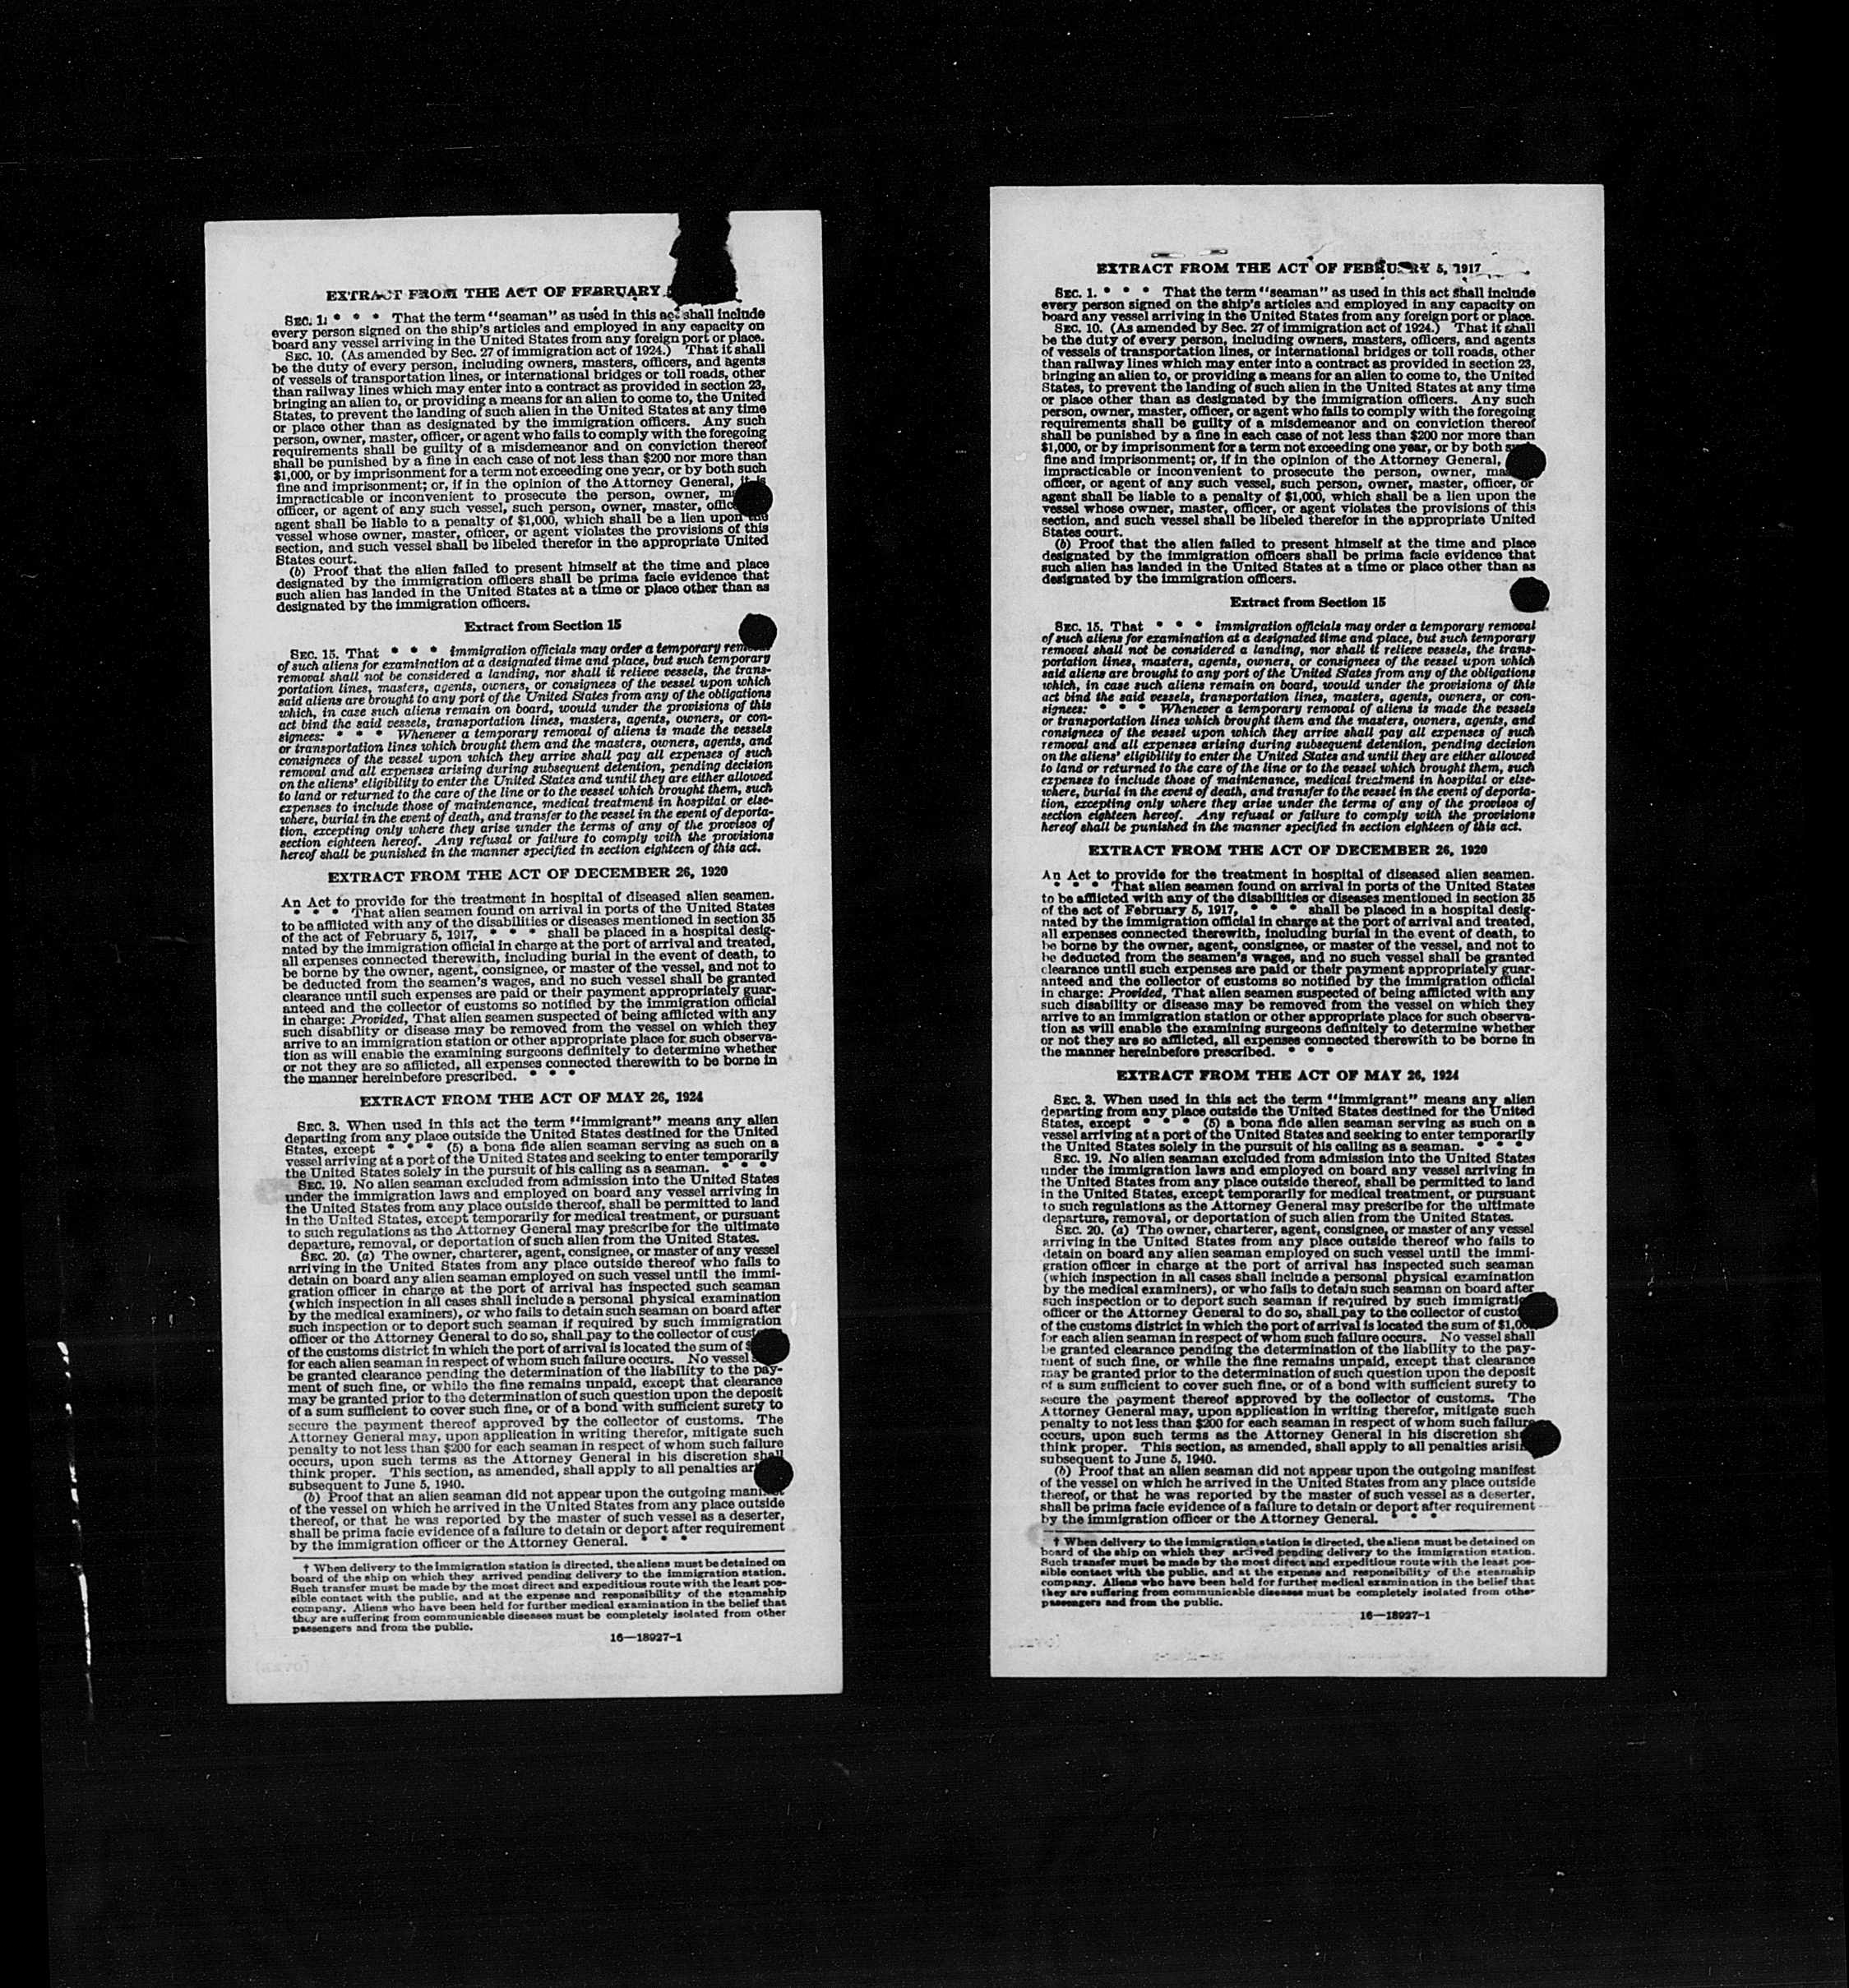 EXTRACT FROM THE ACT OF FEBRUARY
SEC. 1. * * * That the term "seaman" as used in this act shall include
every person signed on the ship's articles and employed in any capacity on
board any vessel arriving in the United States from any foreign port or place.
SEC. 10. (As amended by Sec. 27 of immigration act of 1924.) That it shall
be the duty of every person, including owners, masters, officers, and agents
of vessels of transportation lines, or international bridges or toll roads, other
than railway lines which may enter into a contract as provided in section 23,
bringing an alien to, or providing a means for an alien to come to, the United
States, to prevent the landing of such alien in the United States at any time
or place other than as designated by the immigration officers. Any such
person, owner, master, officer, or agent who fails to comply with the foregoing
requirements shall be guilty of a misdemeanor and on conviction thereof
shall be punished by a fine in each case of not less than $200 nor more than
$1,000, or by imprisonment for a term not exceeding one year, or by both such
fine and imprisonment; or, if in the opinion of the Attorney General, it is
impracticable or inconvenient to prosecute the person, owner,
officer, or agent of any such vessel, such person, owner, master,
agent shall be liable to a penalty of $1,000, which shall be a lien upon the
vessel whose owner, master, officer, or agent violates the provisions of this
section, and such vessel shall be libeled therefor in the appropriate United
States court.
(b) Proof that the alien failed to present himself at the time and place
designated by the immigration officers shall be prima facie evidence that
such alien has landed in the United States at a time or place other than as
designated by the immigration officers.
Extract from Section 15
SEC. 15. That * * * immigration officials may order a temporary removal
of such aliens for examination at a designated time and place, but such temporary
removal shall not be considered a landing, nor shall it relieve vessels, the trans-
portation lines, masters, agents, owners, or consignees of the vessel upon which
said aliens are brought to any port of the United States from any of the obligations
which, in case such aliens remain on board, would under the provisions of this
act bind the said vessels, transportation lines, masters, agents, owners, or con-
signees: * * * Whenever a temporary removal of aliens is made the vessels
or transportation lines which brought them and the masters, owners, agents, and
consignees of the vessel upon which they arrive shall pay all expenses of such
removal and all expenses arising during subsequent detention, pending decision
on the aliens' eligibility to enter the United States and until they are either allowed
to land or returned to the care of the line or to the vessel which brought them, such
expenses to include those of maintenance, medical treatment in hospital or else-
where, burial in the event of death, and transfer to the vessel in the event of deporta-
tion, excepting only where they arise under the terms of any of the provisos of
section eighteen hereof. Any refusal or failure to comply with the provisions
hereof shall be punished in the manner specified in section eighteen of this act.
EXTRACT FROM THE ACT OF DECEMBER 26, 1920
An Act to provide for the treatment in hospital of diseased alien seamen.
* * * That alien seamen found on arrival in ports of the United States
to be afflicted with any of the disabilities or diseases mentioned in section 35
of the act of February 5, 1917, * * * shall be placed in a hospital desig-
nated by the immigration official in charge at the port of arrival and treated,
all expenses connected therewith, including burial in the event of death, to
be borne by the owner, agent, consignee, or master of the vessel, and not to
be deducted from the seamen's wages, and no such vessel shall be granted
clearance until such expenses are paid or their payment appropriately guar-
anteed and the collector of customs so notified by the immigration official
in charge: Provided, That alien seamen suspected of being afflicted with any
such disability or disease may be removed from the vessel on which they
arrive to an immigration station or other appropriate place for such observa-
tion as will enable the examining surgeons definitely to determine whether
or not they are so afflicted, all expenses connected therewith to be borne in
the manner hereinbefore prescribed. * * *
EXTRACT FROM THE ACT OF MAY 26, 1924
SEC. 3. When used in this act the term "immigrant" means any alien
departing from any place outside the United States destined for the United
States, except * * * (5) a bona fide alien seaman serving as such on a
vessel arriving at a port of the United States and seeking to enter temporarily
the United States solely in the pursuit of his calling as a seaman. * * *
SEC. 19. No alien seaman excluded from admission into the United States
under the immigration laws and employed on board any vessel arriving in
the United States from any place outside thereof, shall be permitted to land
in the United States, except temporarily for medical treatment, or pursuant
to such regulations as the Attorney General may prescribe for the ultimate
departure, removal, or deportation of such alien from the United States.
SEC. 20. (a) The owner, charterer, agent, consignee, or master of any vessel
arriving in the United States from any place outside thereof who fails to
detain on board any alien seaman employed on such vessel until the immi-
gration officer in charge at the port of arrival has inspected such seaman
(which inspection in all cases shall include a personal physical examination
by the medical examiners), or who fails to detain such seaman on board after
such inspection or to deport such seaman if required by such immigration
officer or the Attorney General to do so, shall pay to the collector of
of the customs district in which the port of arrival is located the sum of
for each alien seaman in respect of whom such failure occurs. No vessel
be granted clearance pending the determination of the liability to the pay-
ment of such fine, or while the fine remains unpaid, except that clearance
may be granted prior to the determination of such question upon the deposit
of a sum sufficient to cover such fine, or of a bond with sufficient surety to
secure the payment thereof approved by the collector of customs. The
Attorney General may, upon application in writing therefor, mitigate such
penalty to not less than $200 for each seaman in respect of whom such failure
occurs, upon such terms as the Attorney General in his discretion shall
think proper. This section, as amended, shall apply to all penalties
subsequent to June 5, 1940.
(b) Proof that an alien seaman did not appear upon the outgoing manifest
of the vessel on which he arrived in the United States from any place outside
thereof, or that he was reported by the master of such vessel as a deserter,
shall be prima facie evidence of a failure to detain or deport after requirement
by the immigration officer or the Attorney General. * * *
† When delivery to the immigration station is directed, the aliens must be detained on
board of the ship on which they arrived pending delivery to the immigration station.
Such transfer must be made by the most direct and expeditious route with the least pos-
sible contact with the public, and at the expense and responsibility of the steamship
company. Aliens who have been held for further medical examination in the belief that
they are suffering from communicable diseases must be completely isolated from other
passengers and from the public.
16—18927-1
EXTRACT FROM THE ACT OF FEBRUARY 5, 1917
SEC. 1. * * * That the term "seaman" as used in this act shall include
every person signed on the ship's articles and employed in any capacity on
board any vessel arriving in the United States from any foreign port or place.
SEC. 10. (As amended by Sec. 27 of immigration act of 1924.) That it shall
be the duty of every person, including owners, masters, officers, and agents
of vessels of transportation lines, or international bridges or toll roads, other
than railway lines which may enter into a contract as provided in section 23,
bringing an alien to, or providing a means for an alien to come to, the United
States, to prevent the landing of such alien in the United States at any time
or place other than as designated by the immigration officers. Any such
person, owner, master, officer, or agent who fails to comply with the foregoing
requirements shall be guilty of a misdemeanor and on conviction thereof
shall be punished by a fine in each case of not less than $200 nor more than
$1,000, or by imprisonment for a term not exceeding one year, or by both
fine and imprisonment; or, if in the opinion of the Attorney General,
impracticable or inconvenient to prosecute the person, owner,
officer, or agent of any such vessel, such person, owner, master, officer, or
agent shall be liable to a penalty of $1,000, which shall be a lien upon the
vessel whose owner, master, officer, or agent violates the provisions of this
section, and such vessel shall be libeled therefor in the appropriate United
States court.
(b) Proof that the alien failed to present himself at the time and place
designated by the immigration officers shall be prima facie evidence that
such alien has landed in the United States at a time or place other than as
designated by the immigration officers.
Extract from Section 15
SEC. 15. That * * * immigration officials may order a temporary removal
of such aliens for examination at a designated time and place, but such temporary
removal shall not be considered a landing, nor shall it relieve vessels, the trans-
portation lines, masters, agents, owners, or consignees of the vessel upon which
said aliens are brought to any port of the United States from any of the obligations
which, in case such aliens remain on board, would under the provisions of this
act bind the said vessels, transportation lines, masters, agents, owners, or con-
signees: * * * Whenever a temporary removal of aliens is made the vessels
or transportation lines which brought them and the masters, owners, agents, and
consignees of the vessel upon which they arrive shall pay all expenses of such
removal and all expenses arising during subsequent detention, pending decision
on the aliens' eligibility to enter the United States and until they are either allowed
to land or returned to the care of the line or to the vessel which brought them, such
expenses to include those of maintenance, medical treatment in hospital or else-
where, burial in the event of death, and transfer to the vessel in the event of deporta-
tion, excepting only where they arise under the terms of any of the provisos of
section eighteen hereof. Any refusal or failure to comply with the provisions
hereof shall be punished in the manner specified in section eighteen of this act.
EXTRACT FROM THE ACT OF DECEMBER 26, 1920
An Act to provide for the treatment in hospital of diseased alien seamen.
* * * That alien seamen found on arrival in ports of the United States
to be afflicted with any of the disabilities or diseases mentioned in section 35
of the act of February 5, 1917, * * * shall be placed in a hospital desig-
nated by the immigration official in charge at the port of arrival and treated,
all expenses connected therewith, including burial in the event of death, to
be borne by the owner, agent, consignee, or master of the vessel, and not to
be deducted from the seamen's wages, and no such vessel shall be granted
clearance until such expenses are paid or their payment appropriately guar-
anteed and the collector of customs so notified by the immigration official
in charge: Provided, That alien seamen suspected of being afflicted with any
such disability or disease may be removed from the vessel on which they
arrive to an immigration station or other appropriate place for such observa-
tion as will enable the examining surgeons definitely to determine whether
or not they are so afflicted, all expenses connected therewith to be borne in
the manner hereinbefore prescribed. * * *
EXTRACT FROM THE ACT OF MAY 26, 1924
SEC. 3. When used in this act the term "immigrant" means any alien
departing from any place outside the United States destined for the United
States, except * * * (5) a bona fide alien seaman serving as such on a
vessel arriving at a port of the United States and seeking to enter temporarily
the United States solely in the pursuit of his calling as a seaman. * * *
SEC. 19. No alien seaman excluded from admission into the United States
under the immigration laws and employed on board any vessel arriving in
the United States from any place outside thereof, shall be permitted to land
in the United States, except temporarily for medical treatment, or pursuant
to such regulations as the Attorney General may prescribe for the ultimate
departure, removal, or deportation of such alien from the United States.
SEC. 20. (a) The owner, charterer, agent, consignee, or master of any vessel
arriving in the United States from any place outside thereof who fails to
detain on board any alien seaman employed on such vessel until the immi-
gration officer in charge at the port of arrival has inspected such seaman
(which inspection in all cases shall include a personal physical examination
by the medical examiners), or who fails to detain such seaman on board after
such inspection or to deport such seaman if required by such immigration
officer or the Attorney General to do so, shall pay to the collector of
of the customs district in which the port of arrival is located the sum of
for each alien seaman in respect of whom such failure occurs. No vessel shall
be granted clearance pending the determination of the liability to the pay-
ment of such fine, or while the fine remains unpaid, except that clearance
may be granted prior to the determination of such question upon the deposit
of a sum sufficient to cover such fine, or of a bond with sufficient surety to
secure the payment thereof approved by the collector of customs. The
Attorney General may, upon application in writing therefor, mitigate such
penalty to not less than $200 for each seaman in respect of whom such failure
occurs, upon such terms as the Attorney General in his discretion
think proper. This section, as amended, shall apply to all penalties
subsequent to June 5, 1940.
(b) Proof that an alien seaman did not appear upon the outgoing manifest
of the vessel on which he arrived in the United States from any place outside
thereof, or that he was reported by the master of such vessel as a deserter,
shall be prima facie evidence of a failure to detain or deport after requirement
by the immigration officer or the Attorney General. * * *
† When delivery to the immigration station is directed, the aliens must be detained on
board of the ship on which they arrived pending delivery to the immigration station.
Such transfer must be made by the most direct and expeditious route with the least pos-
sible contact with the public, and at the expense and responsibility of the steamship
company. Aliens who have been held for further medical examination in the belief that
they are suffering from communicable diseases must be completely isolated from other
passengers and from the public.
16—18927-1